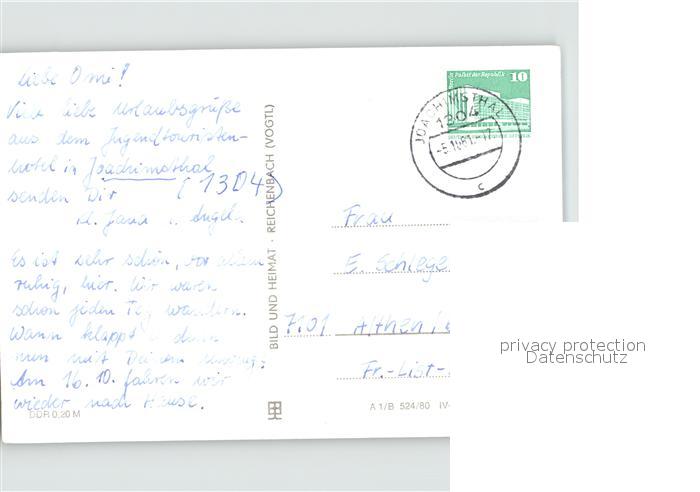 Liebe Omi!
Viele liebe Urlaubsgrüße
aus dem Jugendtouristen-
hotel in Joachimsthal
senden Dir (1304)
Jana u. Angela
Es ist sehr schön, vor allem
ruhig, hier. Wir waren
schon jeden Tag wandern.
Wann klappt denn
nun mit Deinem Umzug?
Am 16.10. fahren wir
wieder nach Hause.
DDR 0,20 M
BILD UND HEIMAT · REICHENBACH (VOGTL)
Palast der Republik 10
JOACHIMSTHAL
1304
c
Frau
E. Schlege
7101 Althen/
Fr.-List-
A 1/B 524/80 IV-
privacy protection
Datenschutz